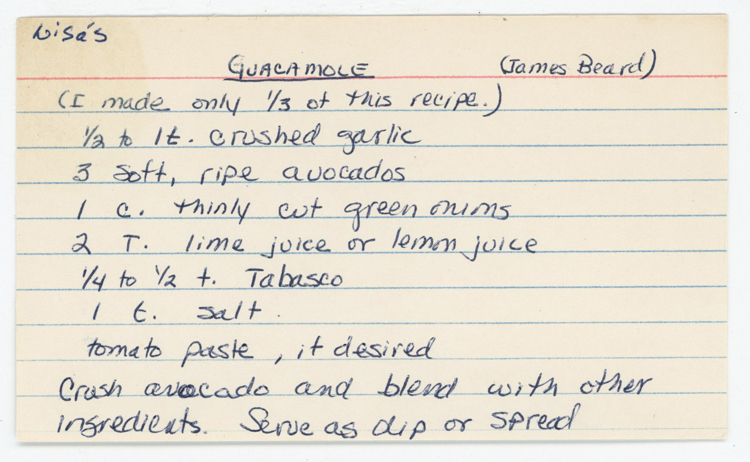 Lisa's
GUACAMOLE (James Beard)
(I made only 1/3 of this recipe.)
1/2 to 1t. crushed garlic
3 soft, ripe avocados
1 c. thinly cut green onions
2 T. lime juice or lemon juice
1/4 to 1/2 t. Tabasco
1 t. salt.
tomato paste, if desired
Crash avocado and blend with other
ingredients. Serve as dip or spread